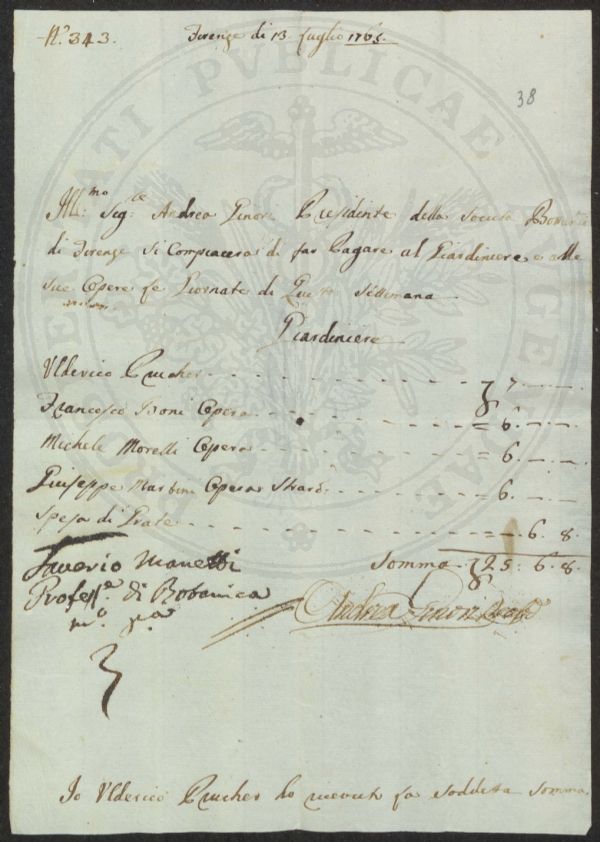 N.º 343.
Firenze di 13. Luglio 1765.
38
Ill:mo Sig:re Andrea Ginori Presidente della Società Botanica
di Firenze si Compiacerà di far Pagare al Giardiniere e alle
sue Opere le Giornate di Questa Settimana
Giardiniere
Ulderico Prucher - - - - - - - - 7. - -
Francesco Boni Opera - - - - - = 6. - -
Michele Morelli Opera - - - - - = 6. - -
Giuseppe Martini Opera - - - - = 6. - -
Spesa di Grate - - - - - - = - 6. 8.
Saverio Manetti
Profess.e di Botanica
m.o p.a
Somma 25: 6. 8.
Andrea Ginori
Io Ulderico Prucher ho ricevuto la soddetta Somma
PUBLICAE